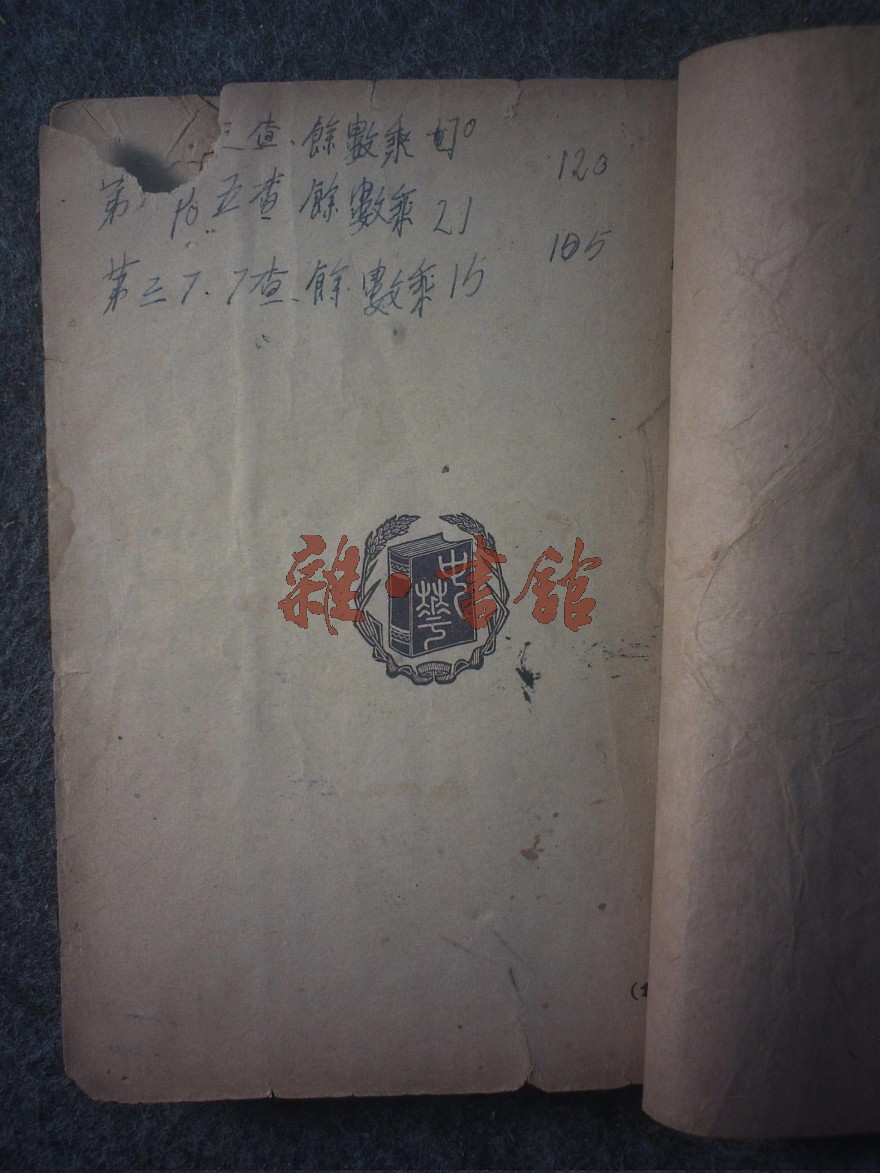 三查、餘數乘70
120
第 五查 餘數乘21
105
第三7.7查、餘數乘15
中華
雜·書館
(1